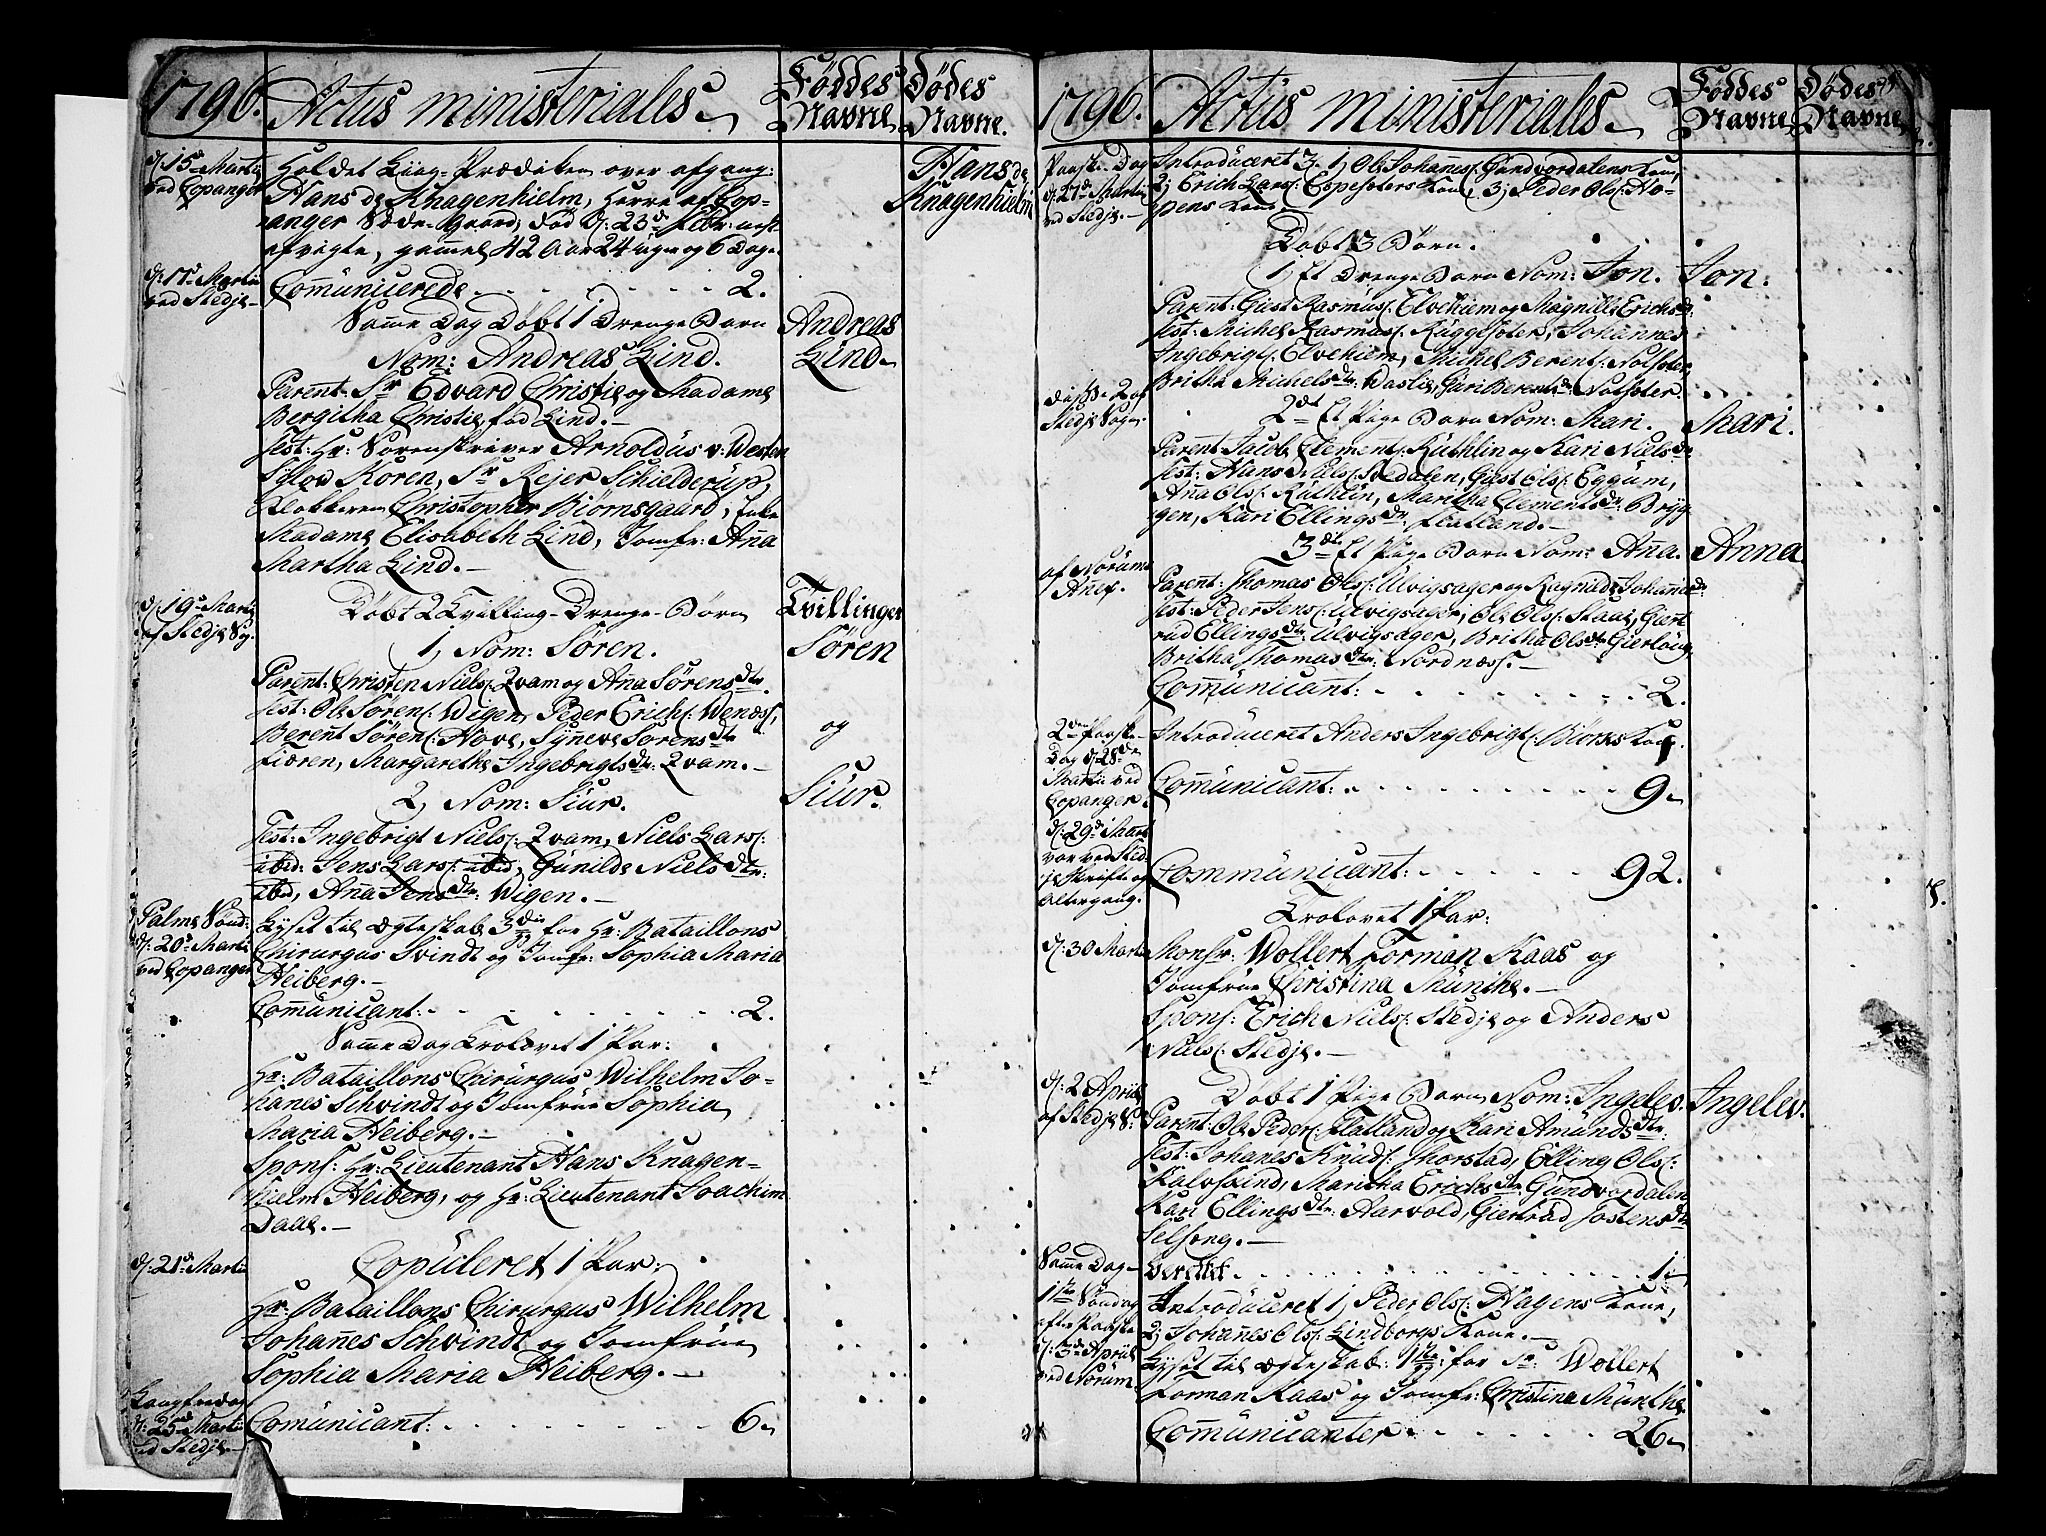 1796. Actus ministeriales Føddes Navne Dødes Navne.
d: 15de Martii ved Copanger
Holdet Liig-Prædiken over afgang:
Hans de Knagenhielm, Herre af Cop-
anger Sæde-Gaard, død d: 23de Febr: nest
afvigte, gammel 42 Aar 24 uger og 6 Dage.
Hans de Knagenhielm
d: 17de Martii ved Stedje
Comunicerede 2.
Same Dag Døbt 1 Drenge Barn
Nom: Andreas Lind.
Andreas Lind
Parent: Sr Edvard Christie og Madame
Bergitha Christie, fød Lind.
Test: Hr: Sorenskriver Arnoldus v: Westen
Sylow Koren, Sr Rejer Schielderup,
Klokkeren Christopher Biørnsgaard, Enke
Madame Elisabeth Lind, Jomfr: Aña
Martha Lind.
d: 19de Martii af Stedje Sogn
Døbt 2 Tvilling-Drenge-Børn
Tvillinger
1, Nom: Søren.
Søren
Parent: Christen Niels: Qvam og Aña Sørensdtr
Test: Ole Sørens: Wigen, Peder Erichs: Wenæs,
Berent Sørens: Hove, Syñeve Sørensdtr
Fiæren, Margarethe Ingebrigtsdtr: Qvam.
og
2, Nom: Siur.
Siur.
Test: Ingebrigt Niels: Qvam, Niels Lars:
ibid: Jens Lars: ibid, Gunilde Nielsdtr:
ibid, Aña Jensdtr: Wigen.
Palme Sønd: d: 20de Martii ved Copanger
Lyset til Ægteskab 3die gg for Hr: Bataillons
Chirurgus Svindt og Jomfr: Sophia Maria
Heiberg.
Comunicant: 2.
Same Dag Trolovet 1 Par:
Hr: Bataillons Chirurgus Wilhelm Jo-
hañes Schvindt og Jomfrue Sophia
Maria Heiberg.
Spons: Hr: Lieutenant Hans Knagen-
hielm Heiberg, og Hr: Lieutenant Joachim
Daae.
d: 21de Martii
Copuleret 1 Par:
Hr: Bataillons Chirurgus Wilhelm
Johañes Schvindt og Jomfrue
Sophia Maria Heiberg.
Langfredag d: 25de Martii ved Stedje
Comunicant: 6
1796. Actus ministeriales Føddes Navne Dødes Navne
Paaske Dag d: 27de Martii ved Stedje
Introduceret 3. 1, Ole Johañes: Gundvordalens Kone,
2, Erich Lars: Eppesæters Kone, 3, Peder Ols: Ho-
pens Kone
Døbt 3 Børn.
1, Et Drenge Barn Nom: Jon.
Jon:
Parent: Giest Rasmus: Elvehiem og Magnille Erichsdtr:
Test: Michel Rasmus: Ruggesæter, Johannes
Ingebrigts: Elvehiem, Michel Berents: Nolsæter,
Britha Michelsdtr: Daslie, Guri Berentsdtr Nolsæter.
disse 2 af Stedje Sogn
2det Et Pige Barn Nom: Mari.
Mari.
Parent: Jacob Clements: Kuthlin og Kari Nielsdtr
Test: Hans Niels: Nedalen, Giest Ols: Eggum,
Aña Ols: Kuthlin, Maritha Clementsdtr: Bryg-
gen, Kari Ellingsdtr: Flatland.
af Norums Anex.
3die Et Pige Barn Nom: Aña.
Anna
Parent: Thomas Ols: Ulvigsager og Ragnilde Johañesdtr:
Test: Peder Jens: Ulvigsager, Ole Ols: Staai, Giert
rud Ellingsdtr: Ulvigsager, Britha Olsdtr Gierløug,
Britha Thomasdtr: Nordnæs.
Comunicant: 2.
2den Paaske-Dag d: 28de Martii ved Copanger
Introduceret Anders Ingebrigts: Biørks Kone.
Comunicant: 9
d: 29de Mart: var ved Stedje Skrifte og Altergang.
Communicant: 92.
Trolovet 1 Par:
d: 30 Martii
Monsr: Wollert Forman Kaas og
Jomfrue Christina Munthe.
Spons: Erich Niels: Stedje og Anders
Niels: Stedje.
d: 2 April af Stedje S:
Døbt 1 Pige Barn Nom: Ingelev.
Ingelev.
Parent: Ole Peders: Flatland og Kari Amundsdtr:
Test: Johañes Knuds: Thorstad, Elling Ols:
Kalvsund, Maritha Erichsdtr: Gundvordalen
Kari Ellingsdtr: Aarvold, Giertrud Jostensdtr
Selseng.
Same Dag
Berettet 1
1ste Søndag efter Paaske d: 3de April ved Norum
Introduceret 1, Peder Ols: Hagens Kone,
2, Johañes Ols: Lindborgs Kone.
Lyset til Ægteskab: 1ste gg: for Sr: Wollert
Forman Kaas og Jomfr: Christina Munthe.
Comunicanter 26